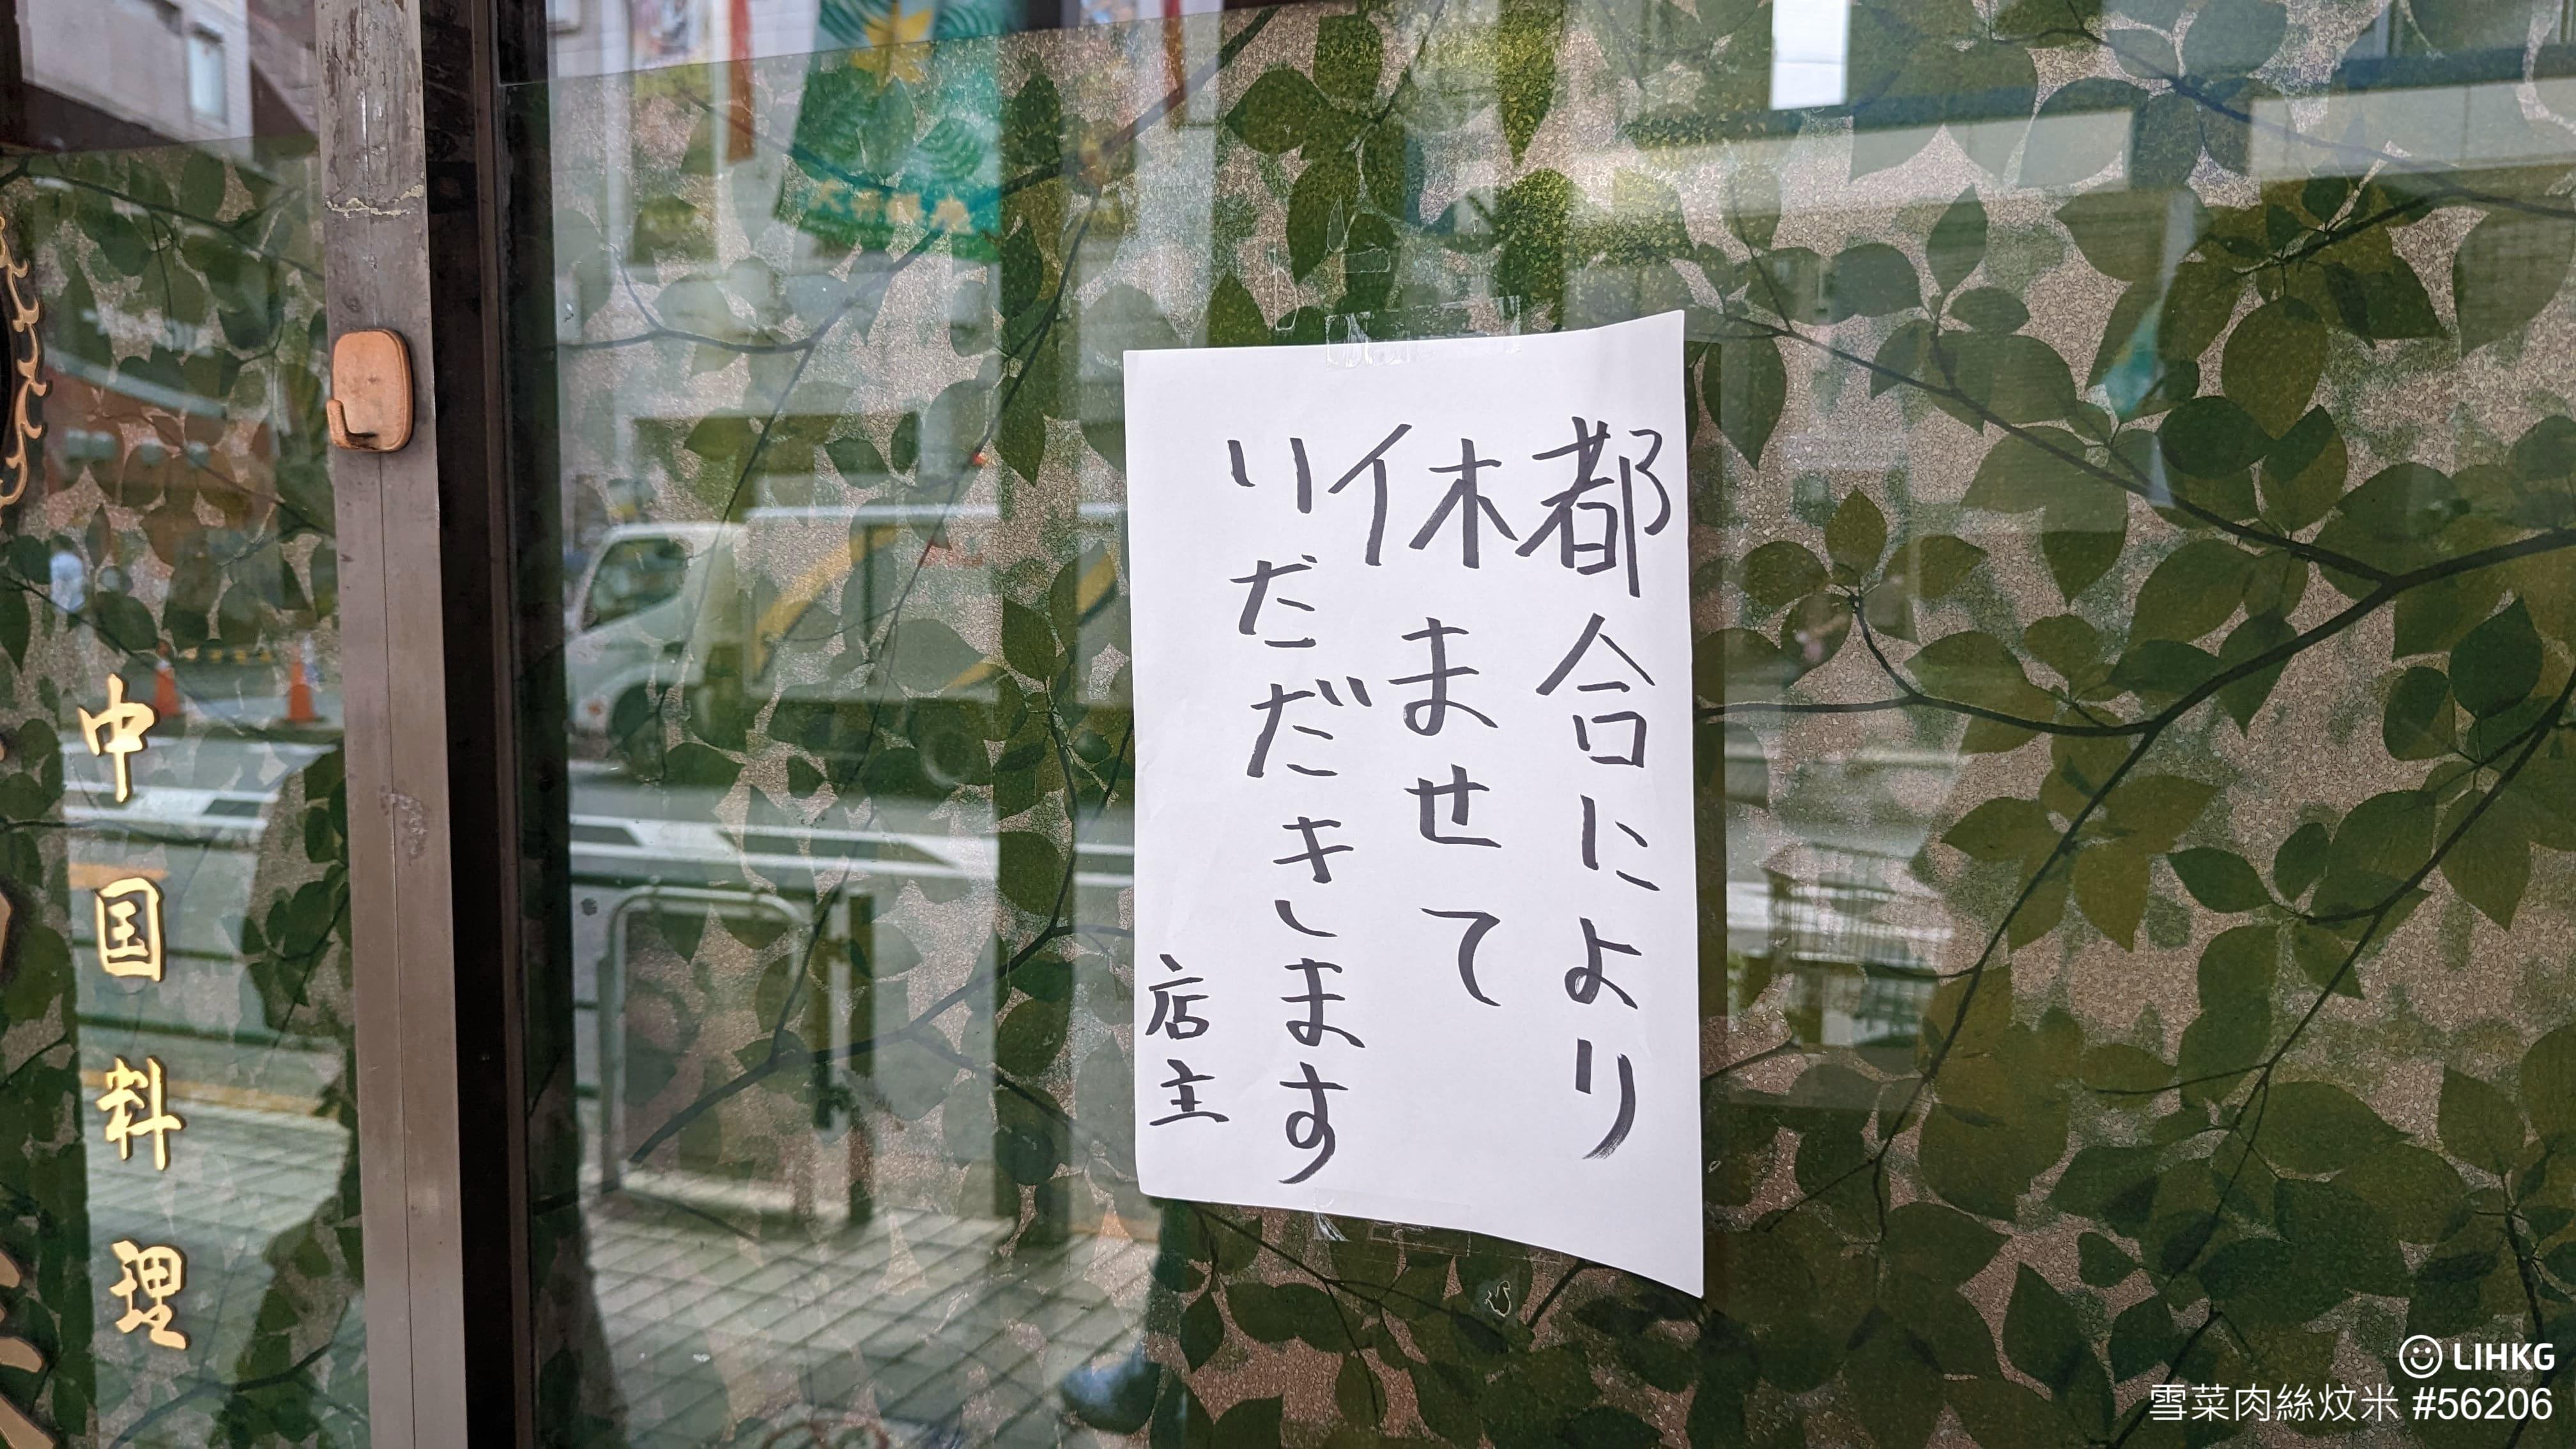 中国料理
都合により
休ませて
いただきます
店主
LIHKG
雪菜肉絲炆米 #56206